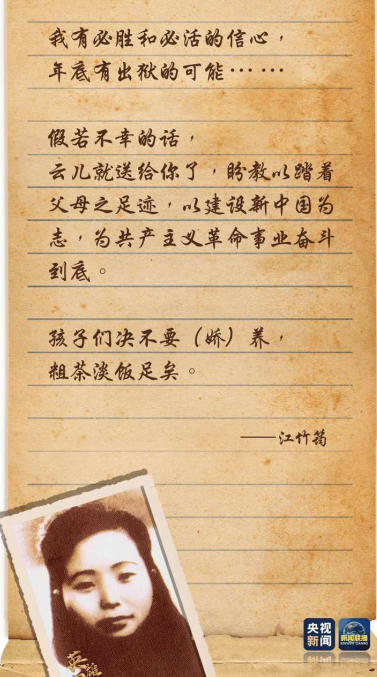 我有必胜和必活的信心，
年底有出狱的可能……
假若不幸的话，
云儿就送给你了，盼教以踏着
父母之足迹，以建设新中国为
志，为共产主义革命事业奋斗
到底。
孩子们决不要（娇）养，
粗茶淡饭足矣。
——江竹筠
英雄
央视
新闻
新闻联播